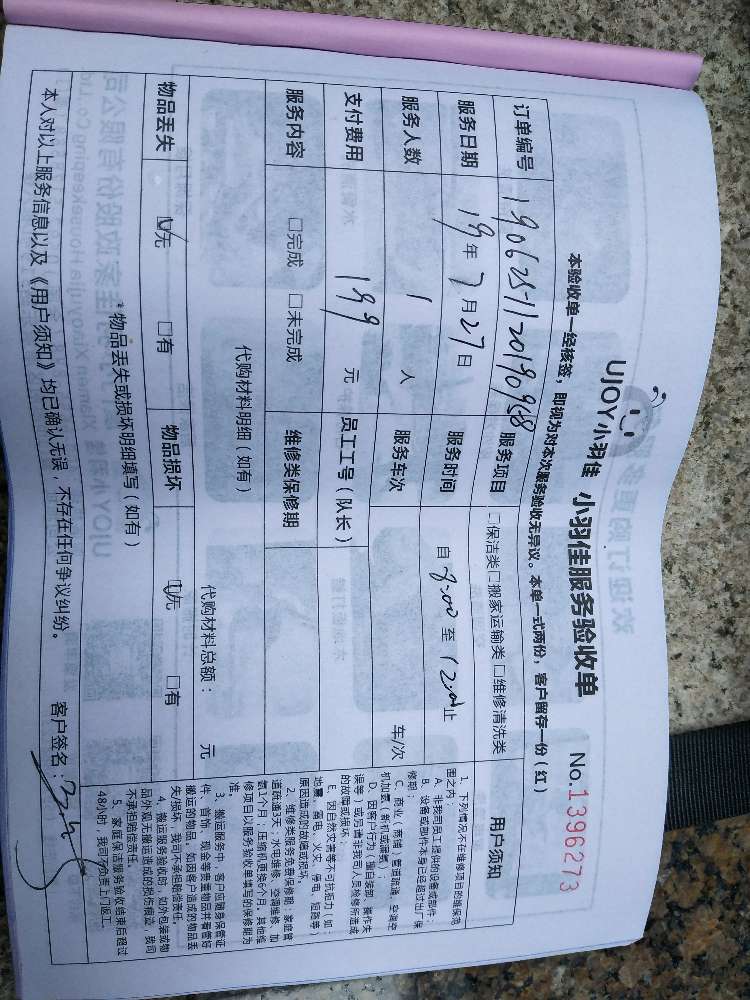 UJOY小羽佳 小羽佳服务验收单 No.1396273
本验收单一经核签，即视为对本次服务验收无异议。本单一式两份，客户留存一份（红）
订单编号 1906251120190958 服务项目 □保洁类□搬家运输类□维修清洗类
服务日期 19年7月27日 服务时间 自8:00至12:00止
服务人数 1 人 服务车次 车/次
支付费用 199 元 员工工号（队长）
服务内容 □完成 □未完成 维修类保修期
代购材料明细（如有） 代购材料总额： 元
物品丢失 ☑无 □有 物品损坏 ☑无 □有
*物品丢失或损坏明细填写（如有）
本人对以上服务信息以及《用户须知》均已确认无误，不存在任何争议纠纷。 客户签名：
用户须知
1、下列情况不在维修项目的维保范
围之内：
A、非我司员工提供的设备或部件；
B、设备或部件本身已经超过出厂保
修期；
C、商业（商铺）管道疏通、空调空
机加氨（新机或漏氨）；
D、因客户行为（擅自装卸、操作失
误等）或另请非我司人员检修所造成
的故障或损坏；
E、因自然灾害等不可抗拒力（如：
地震、雷电、火灾、停电、短路等）
原因造成的故障或损坏。
2、维修类服务免费保修期：家庭管
道疏通3天；水电维修、空调维修、加
氨1个月，压缩机更换6个月，其他维
修项目以服务验收单填写的保修期为
准。
3、搬运服务中，客户应随身保管证
件、首饰、现金等贵重物品并看管好
搬运的物品。如因客户造成的物品丢
失/损坏，我司不承担赔偿责任。
4、搬运服务验收时，如外包装或物
品外观无搬运造成的破损/伤痕迹，我司
不承担赔偿责任。
5、家庭保洁服务验收结束后超过
48小时，我司不负责上门返工。